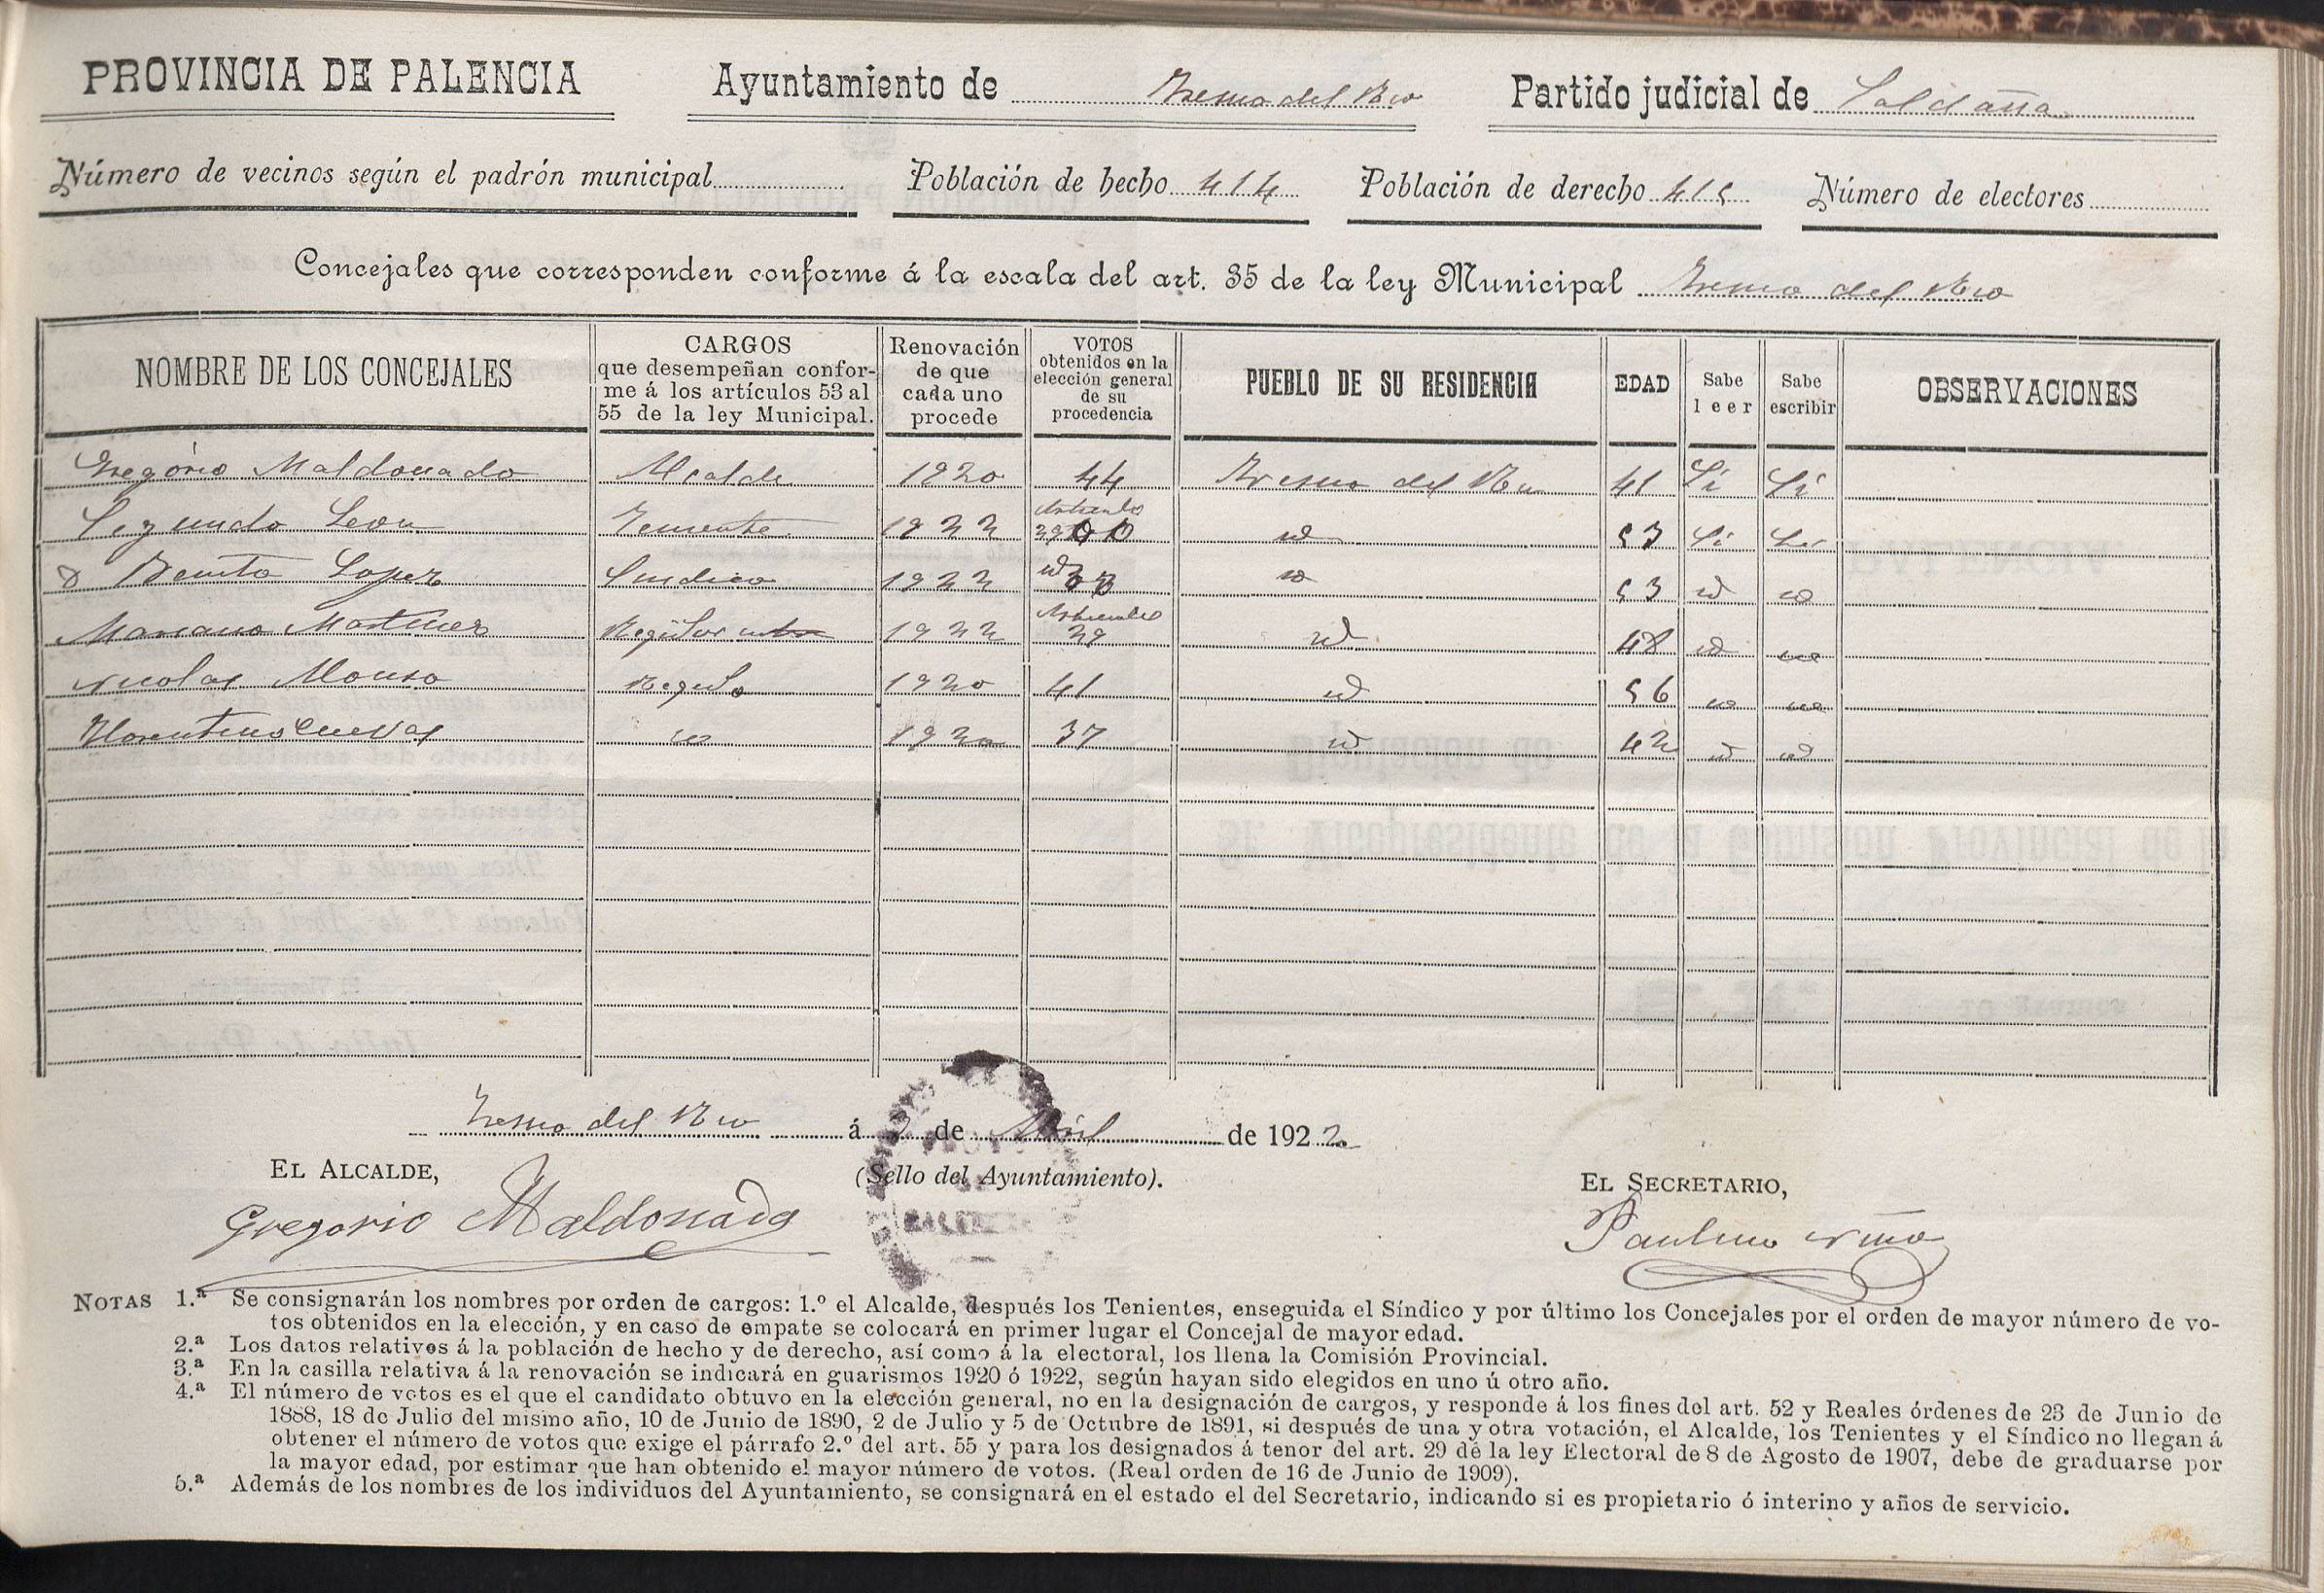 PROVINCIA DE PALENCIA Ayuntamiento de Fresno del Rio Partido judicial de Saldaña
Número de vecinos según el padrón municipal Población de hecho 414 Población de derecho 415 Número de electores
Concejales que corresponden conforme á la escala del art. 35 de la ley Municipal Fresno del Rio
NOMBRE DE LOS CONCEJALES CARGOS que desempeñan conforme á los artículos 53 al 55 de la ley Municipal. Renovación de que cada uno procede VOTOS obtenidos en la elección general de su procedencia PUEBLO DE SU RESIDENCIA EDAD Sabe leer Sabe escribir OBSERVACIONES
Gregorio Maldonado Alcalde 1920 44 Fresno del Rio 41 Si Si
Segundo Leon Teniente 1922 Articulo 29 id 53 Si Si
Benito Lopez Sindico 1922 id id 53 id id
Mariano Martinez Regidor 1922 Articulo 29 id 48 id id
Nicolas Alonso Regidor 1920 41 id 56 id id
Florentino Cuevas id 1920 37 id 42 id id
Fresno del Rio á 2 de Abril de 1922
EL ALCALDE, (Sello del Ayuntamiento). EL SECRETARIO,
Gregorio Maldonado Paulino Niño
NOTAS 1.ª Se consignarán los nombres por orden de cargos: 1.º el Alcalde, después los Tenientes, enseguida el Síndico y por último los Concejales por el orden de mayor número de vo-
tos obtenidos en la elección, y en caso de empate se colocará en primer lugar el Concejal de mayor edad.
2.ª Los datos relativos á la población de hecho y de derecho, así como á la electoral, los llena la Comisión Provincial.
3.ª En la casilla relativa á la renovación se indicará en guarismos 1920 ó 1922, según hayan sido elegidos en uno ú otro año.
4.ª El número de votos es el que el candidato obtuvo en la elección general, no en la designación de cargos, y responde á los fines del art. 52 y Reales órdenes de 23 de Junio de
1888, 18 de Julio del mismo año, 10 de Junio de 1890, 2 de Julio y 5 de Octubre de 1891, si después de una y otra votación, el Alcalde, los Tenientes y el Síndico no llegan á
obtener el número de votos que exige el párrafo 2.º del art. 55 y para los designados á tenor del art. 29 de la ley Electoral de 8 de Agosto de 1907, debe de graduarse por
la mayor edad, por estimar que han obtenido el mayor número de votos. (Real orden de 16 de Junio de 1909).
5.ª Además de los nombres de los individuos del Ayuntamiento, se consignará en el estado el del Secretario, indicando si es propietario ó interino y años de servicio.